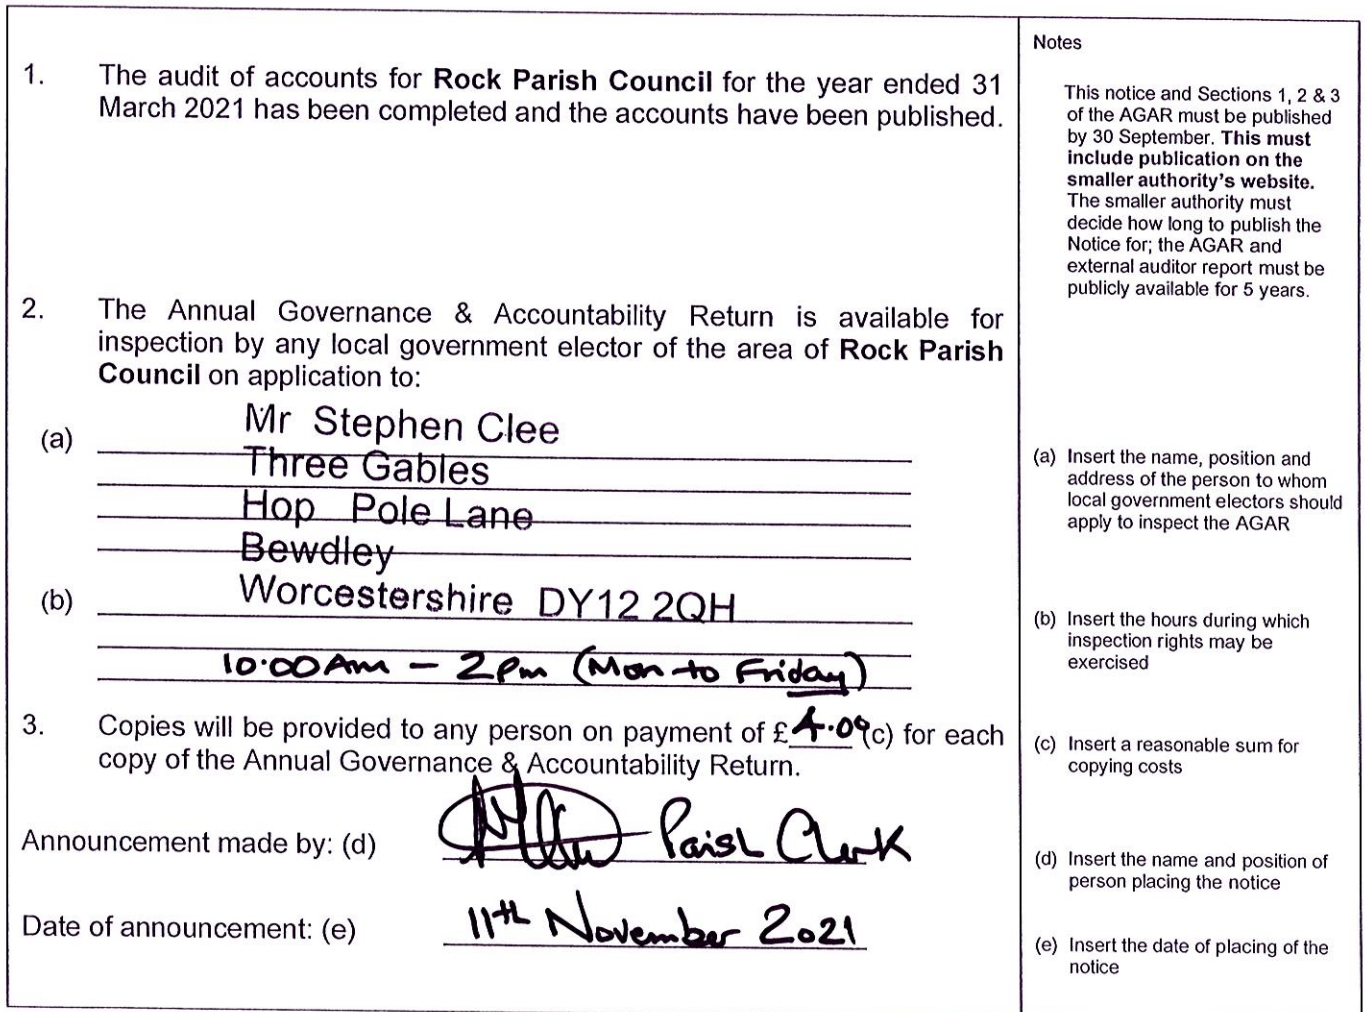 1. The audit of accounts for Rock Parish Council for the year ended 31
March 2021 has been completed and the accounts have been published.
2. The Annual Governance & Accountability Return is available for
inspection by any local government elector of the area of Rock Parish
Council on application to:
(a) Mr Stephen Clee
Three Gables
Hop Pole Lane
Bewdley
(b) Worcestershire DY12 2QH
10.00Am - 2pm (Mon to Friday)
3. Copies will be provided to any person on payment of £4.09(c) for each
copy of the Annual Governance & Accountability Return.
Announcement made by: (d) Parish Clerk
Date of announcement: (e) 11th November 2021
Notes
This notice and Sections 1, 2 & 3
of the AGAR must be published
by 30 September. This must
include publication on the
smaller authority's website.
The smaller authority must
decide how long to publish the
Notice for; the AGAR and
external auditor report must be
publicly available for 5 years.
(a) Insert the name, position and
address of the person to whom
local government electors should
apply to inspect the AGAR
(b) Insert the hours during which
inspection rights may be
exercised
(c) Insert a reasonable sum for
copying costs
(d) Insert the name and position of
person placing the notice
(e) Insert the date of placing of the
notice